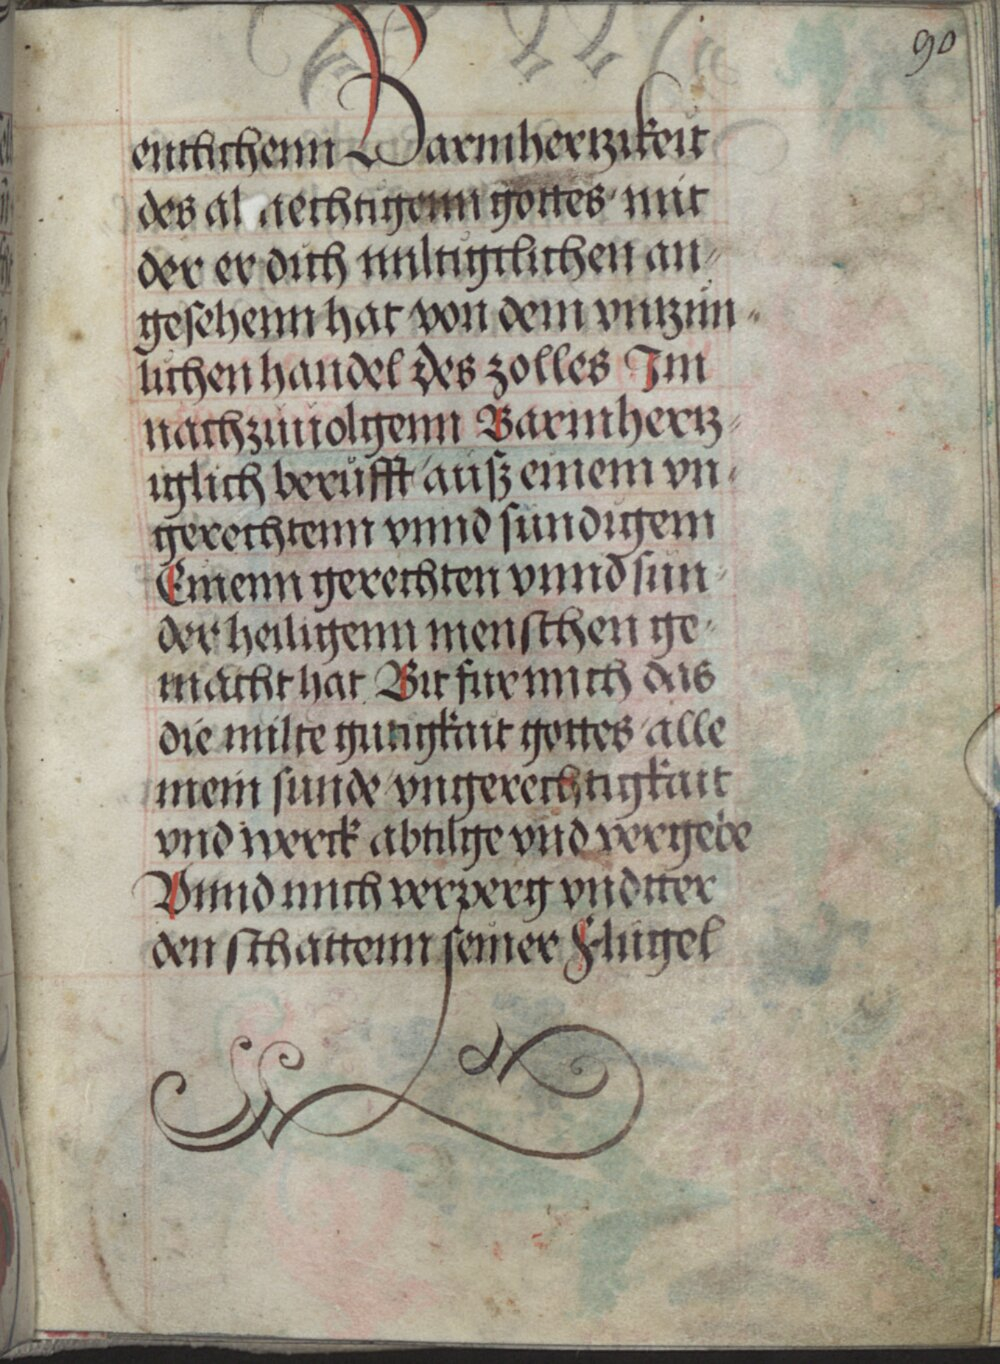 90
entlichenn Barmhertzikeit
des al aechtigenn gottes mit
der er dich miltigclichen an-
gesehenn hat von dem vntzim-
lichen handel des zolles Im
nachzuuolgenn Barmhertz-
iglich berufft auß einem vn-
gerechtenn vnnd sundigem
Einenn gerechten vnnd sun-
der heiligenn menschen ge-
macht hat Bit fur mich das
die milte gutigkait gottes alle
mein sunde vngerechtigkait
vnd werck abtilge vnd vergebe
Vnnd mich verperg vndtter
den schattenn seiner Flugel